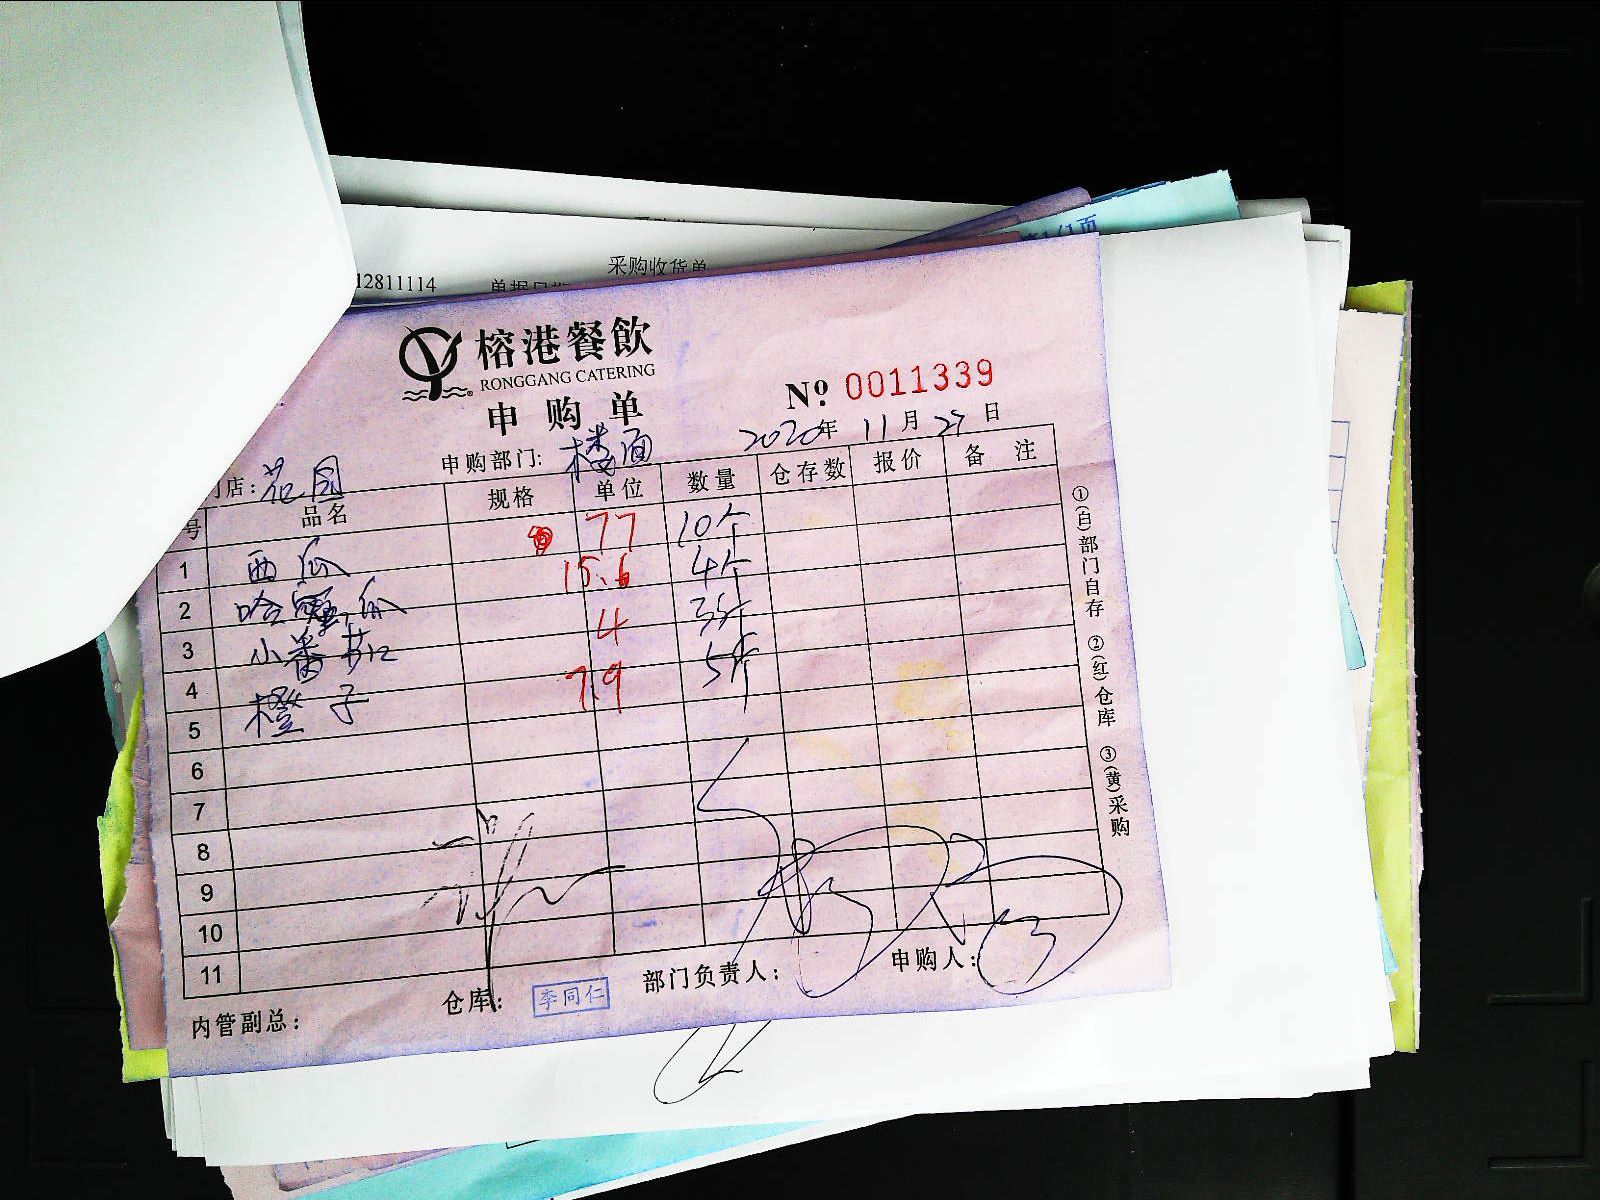 采购收货单
12811114
单据日期
第1/1页
榕港餐飲
RONGGANG CATERING
申购单
№ 0011339
2020年 11月 27日
门店: 花园 申购部门: 楼面
号 品名 规格 单位 数量 仓存数 报价 备注
1 西瓜 77 10个
2 哈密瓜 15.6 4个
3 小番茄 4 3斤
4 橙子 7.9 5斤
5
6
7
8
9
10
11
①(白)部门自存 ②(红)仓库 ③(黄)采购
内管副总: 仓库: 李同仁 部门负责人: 申购人: